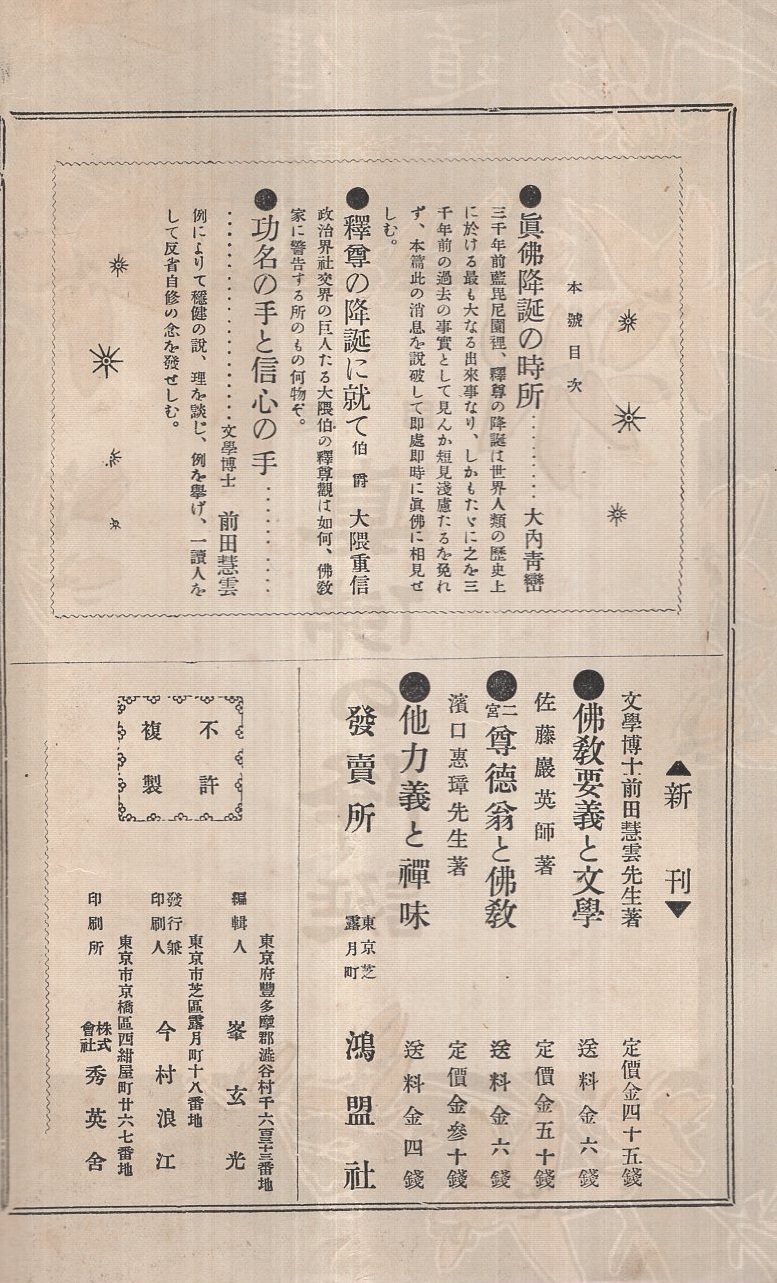 本號目次
●眞佛降誕の時所………大內靑巒
三千年前藍毘尼園裡、釋尊の降誕は世界人類の歷史上
に於ける最も大なる出來事なり、しかもたゞに之を三
千年前の過去の事實として見んか短見淺慮たるを免れ
ず、本篇此の消息を說破して卽處卽時に眞佛に相見せ
しむ。
●釋尊の降誕に就て 伯爵 大隈重信
政治界社交界の巨人たる大隈伯の釋尊觀は如何、佛敎
家に警告する所のもの何物ぞ。
●功名の手と信心の手………
………文學博士 前田慧雲
例によりて穩健の說、理を談じ、例を擧げ、一讀人を
して反省自修の念を發せしむ。
▲新刊▼
文學博士前田慧雲先生著 定價金四十五錢
●佛敎要義と文學 送料金六錢
佐藤巖英師著 定價金五十錢
●二宮尊德翁と佛敎 送料金六錢
濱口惠璋先生著 定價金參十錢
●他力義と禪味 送料金四錢
發賣所 東京芝露月町 鴻盟社
不許
複製
東京府豐多摩郡澁谷村千六百三十三番地
編輯人 峯玄光
東京市芝區露月町十八番地
發行兼印刷人 今村浪江
東京市京橋區西紺屋町廿六七番地
印刷所 株式會社 秀英舍